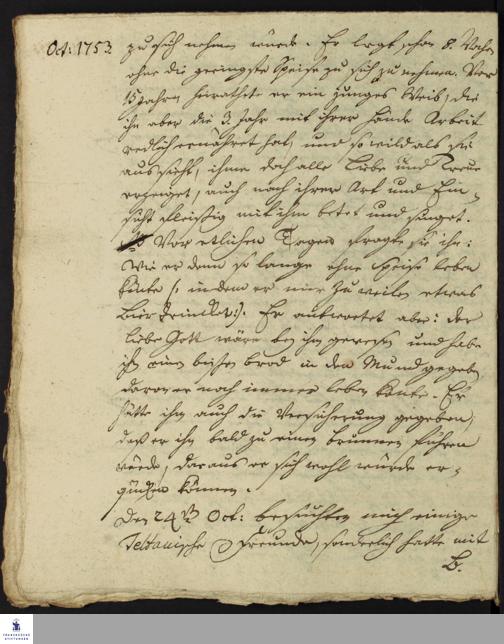 Oct: 1753. zu sich nehmen würde. Er legt schon 8. Wochen
ohne die geringste Speise zu sich zu nehmen. Vor
15 Jahren heirathete er ein junges Weib, die
ihn aber die 3 Jahr mit ihrer Hände Arbeit
redlich ernähret hat, und so wild als sie
aussieht, ihme doch alle Liebe und Treue
erzeiget, auch nach ihrer Art und Ein-
sicht fleissig mit ihm betet und singet.
Vor etlichen Tagen fragte sie ihn:
Wie er denn so lange ohne Speise leben
könte /: indem er nur zu weilen etwas
Bier trincket :/. Er antwortet aber: der
liebe Gott wäre bey ihm gewesen und habe
ihm einen bissen brod in den Mund gegeben
davon er noch immer leben könte. Er
hätte ihm auch die Versicherung gegeben,
daß er ihn bald zu einem brunnen führen
würde, daraus er sich wohl würde er-
quicken können.
Den 24 Oct: besuchten mich einige
Teltauische Freunde, sonderlich hatte mit
B.
FRANCKESCHE
STIFTUNGEN